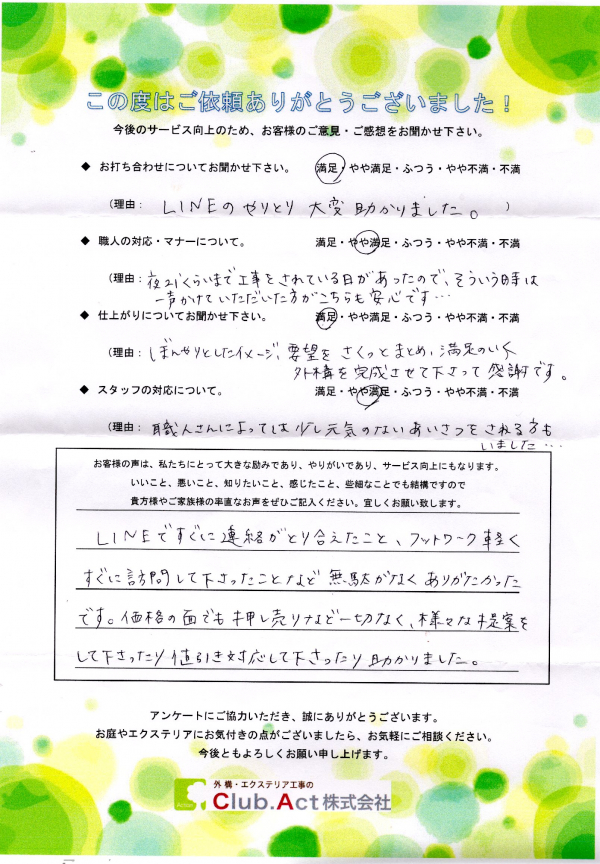 この度はご依頼ありがとうございました！
今後のサービス向上のため、お客様のご意見・ご感想をお聞かせ下さい。
◆ お打ち合わせについてお聞かせ下さい。 満足・やや満足・ふつう・やや不満・不満
（理由： LINEの やりとり 大変 助かりました。 ）
◆ 職人の対応・マナーについて。 満足・やや満足・ふつう・やや不満・不満
（理由：夜21くらいまで工事をされている日があったので、そういう時は
一声かけていただいた方がこちらも安心です…
◆ 仕上がりについてお聞かせ下さい。 満足・やや満足・ふつう・やや不満・不満
（理由： ぼんやりとしたイメージ、要望を さくっとまとめ、満足のいく
外構を完成させて下さって 感謝です。
◆ スタッフの対応について。 満足・やや満足・ふつう・やや不満・不満
（理由： 職人さんによっては 少し元気のないあいさつをされる方も
いました…
お客様の声は、私たちにとって大きな励みであり、やりがいであり、サービス向上にもなります。
いいこと、悪いこと、知りたいこと、感じたこと、些細なことでも結構ですので
貴方様やご家族様の率直なお声をぜひご記入ください。宜しくお願い致します。
LINEですぐに連絡がとり合えたこと、フットワーク軽く
すぐに訪問して下さったことなど 無駄がなく ありがたかった
です。価格の面でも押し売りなど一切なく、様々な提案を
して下さったり 値引き対応して下さったり 助かりました。
アンケートにご協力いただき、誠にありがとうございます。
お庭やエクステリアにお気付きの点がございましたら、お気軽にご相談ください。
今後ともよろしくお願い申し上げます。
外構・エクステリア工事の
Club.Act株式会社